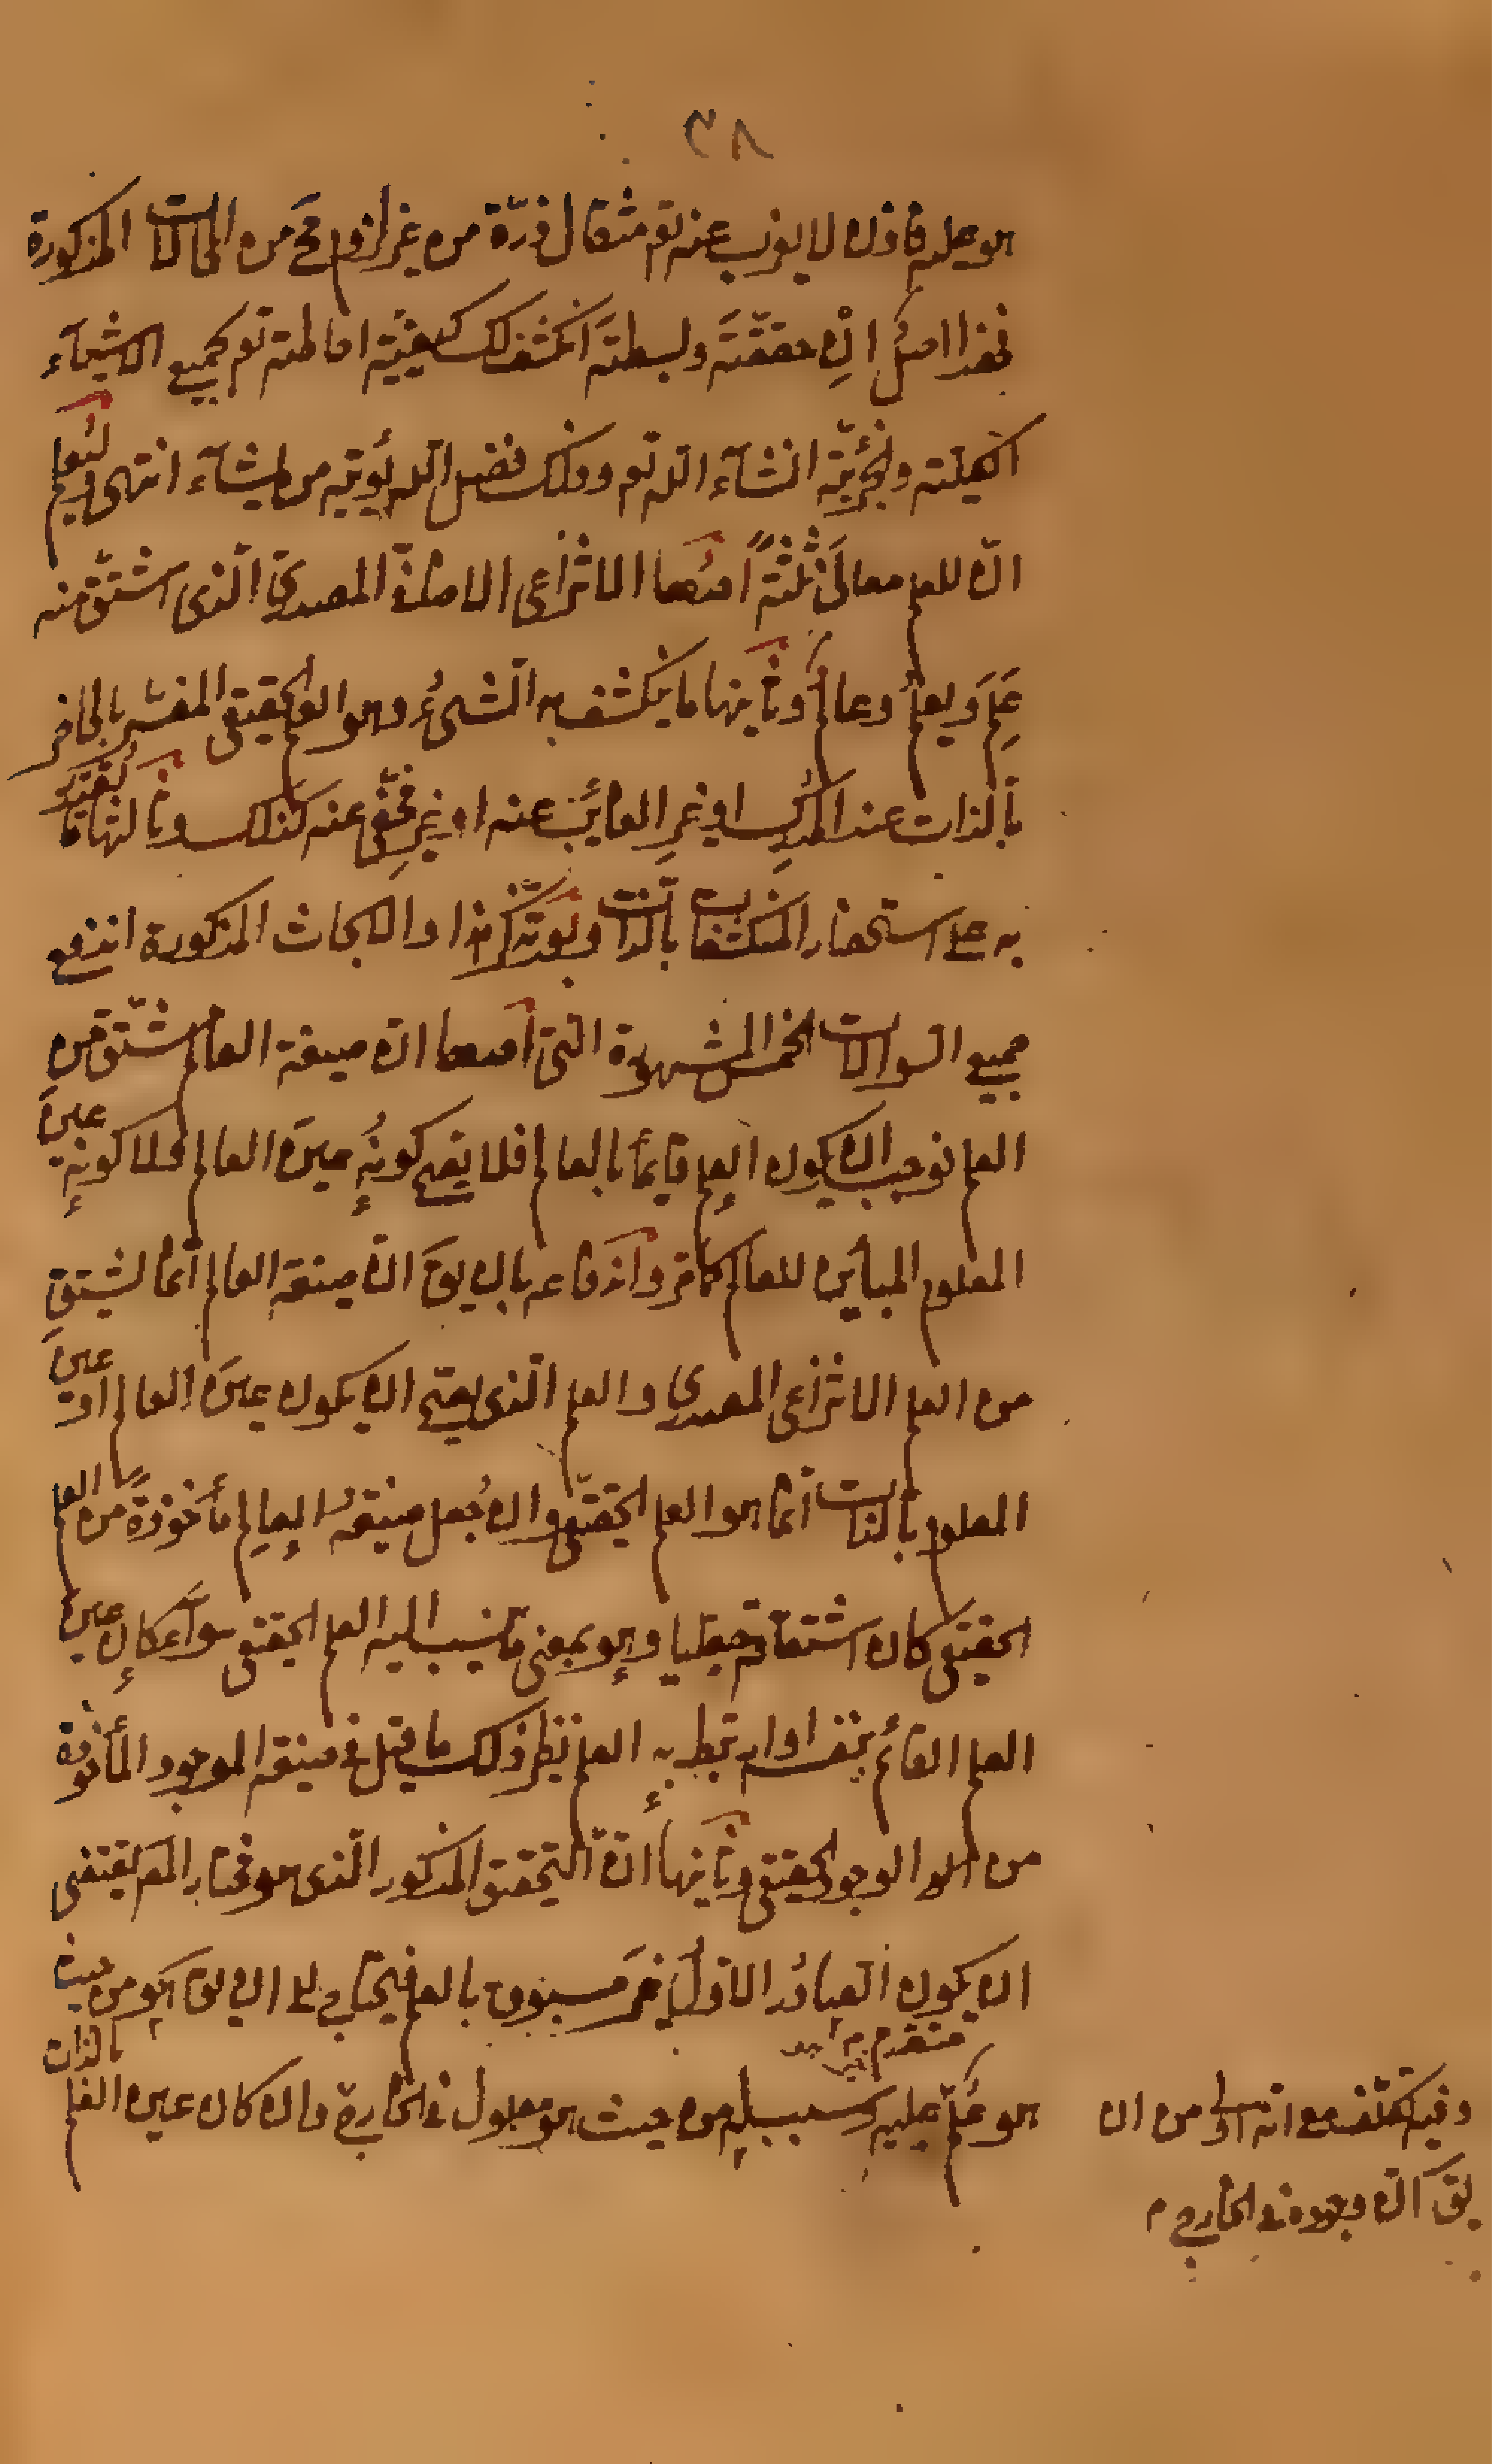 ٣٨
هو علمه فاذن لا يعزب عنه تع مثقال ذرّة من غير لزوم مح من المحالات المذكورة
فهذا اصلٌ اِن حققتَه وبسطتَه انكشف لك كيفيّة احاطته تع بجميع الاشياء
الكليّة والجزئيّة انشاء الله تع وذلك فضل الله يُؤتيه من يشاء انتهى وليُعلم
انّ للعلم معانىَ ثلثةً احدُها الانتزاعى الاضافىّ المصدرىّ الّذى اشتقّ منه
عَلِمَ ويعلمُ وعالمٌ وثانيها ما ينكشف به الشىءُ وهو العلم الحقيقى المفسّر بالحاضر
بالذات عند المُدرِك او غيرِ الغائب عنه او غيرِ مخفىّ عنه كذلك وثالثها ما يُقتدَر
به على استحضار المنكشفات بالذات وبعد تذكّر هذا والابحاث المذكورة اندفع
جميع السوالات الخمس المشهورة التى احدها انّ صيغة العالم مشتقّة من
العلم فوجب ان يكون العلم قائما بالعالم فلا يصح كونُه عينَ العالم ولا كونه عينَ
المعلوم المباين للعالم كما مر واندفاعه بان يقَ انّ صيغة العالم انّما تشتق
من العلم الانتزاعى المصدرى والعلم الّذى يصحّ ان يكون عينَ العالم او عينَ
المعلوم بالذات انّما هو العلم الحقيقى وان جُعل صيغةُ العالِم مأخوذةً من العلم
الحقيقى كان اشتقاقه جعليا وهو بمعنى ما ينسب اليه العلم الحقيقى سواء كان عينَ
العلم القائم بنفسه او ارتبط به العلم نظير ذلك ما قيل فى صيغة الموجود المأخوذة
من الوجود الحقيقى وثانيها انّ التحقيق المذكور الّذى هو مختار المص يقتضى
ان يكون الصادُر الاوّلُ غيرَ مسبوق بالعلم فيحتاج الى ان يقَ هو من حيث
هو علم عليه وسبب له من حيث هو معلول فى الخارج وان كان عين العلم بالذات
متقدم
وفيه تكلّف مع انّه اولى من ان
يقَ انّ وجوده فى الخارج م